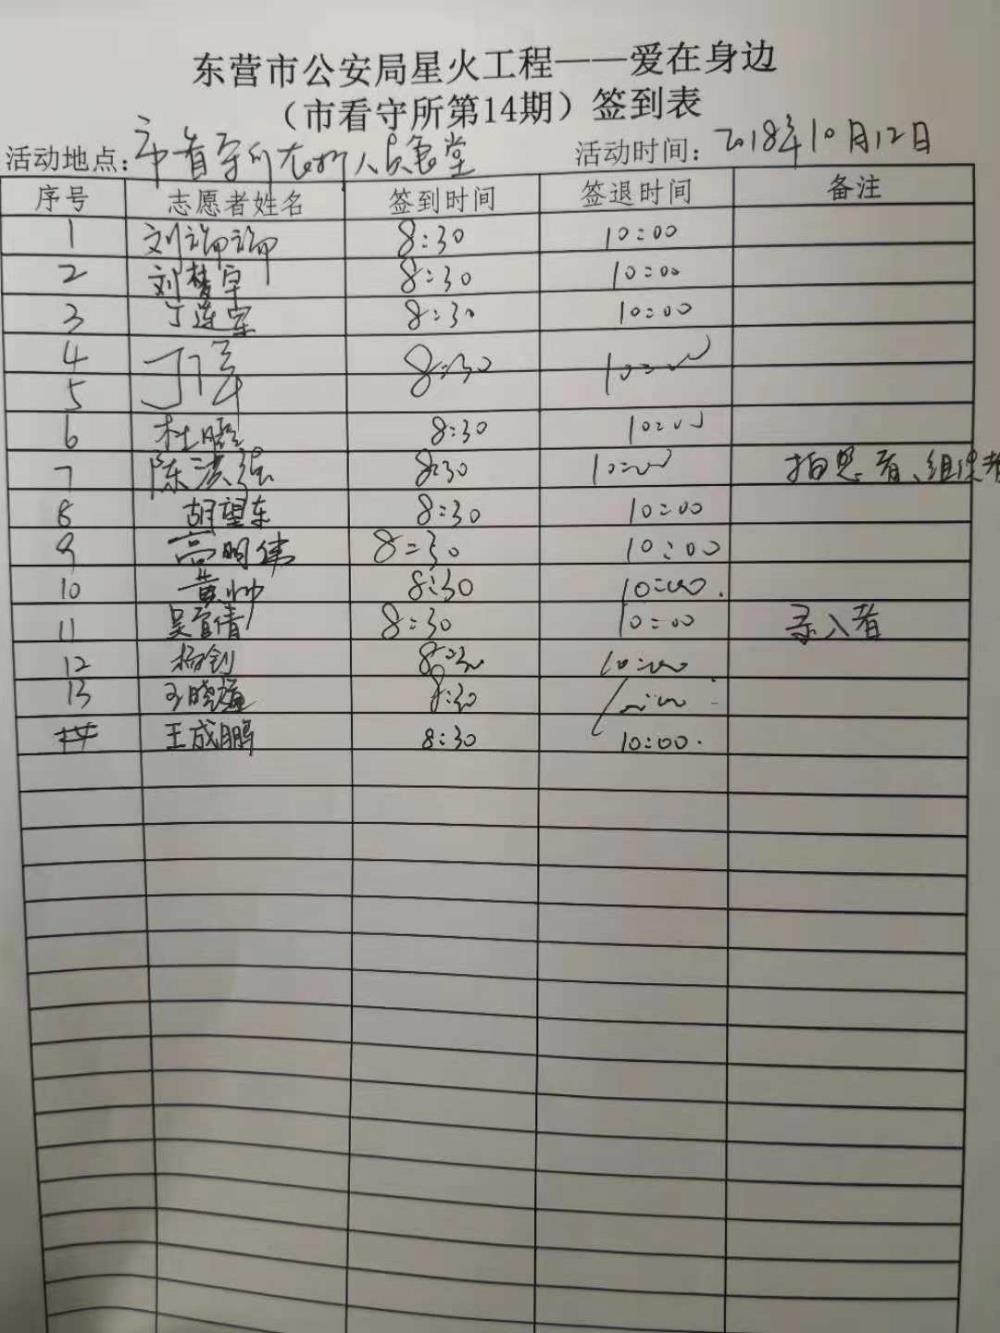 东营市公安局星火工程——爱在身边
（市看守所第14期）签到表
活动地点：市看守所在押人员食堂 活动时间：2018年10月12日
序号 志愿者姓名 签到时间 签退时间 备注
1 刘 8:30 10:00
2 刘梦宇 8:30 10:00
3 丁莲军 8:30 10:00
4 8:30 10:00
5
6 杜鹏 8:30 10:00
7 陈洪强 8:30 10:00 拍照者、组织者
8 胡望东 8:30 10:00
9 高明伟 8:30 10:00
10 黄帅 8:30 10:00.
11 吴萱倩 8:30 10:00 录入者
12 杨钊 8:30 10:00
13 王晓 8:30 10:00
王成鹏 8:30 10:00.